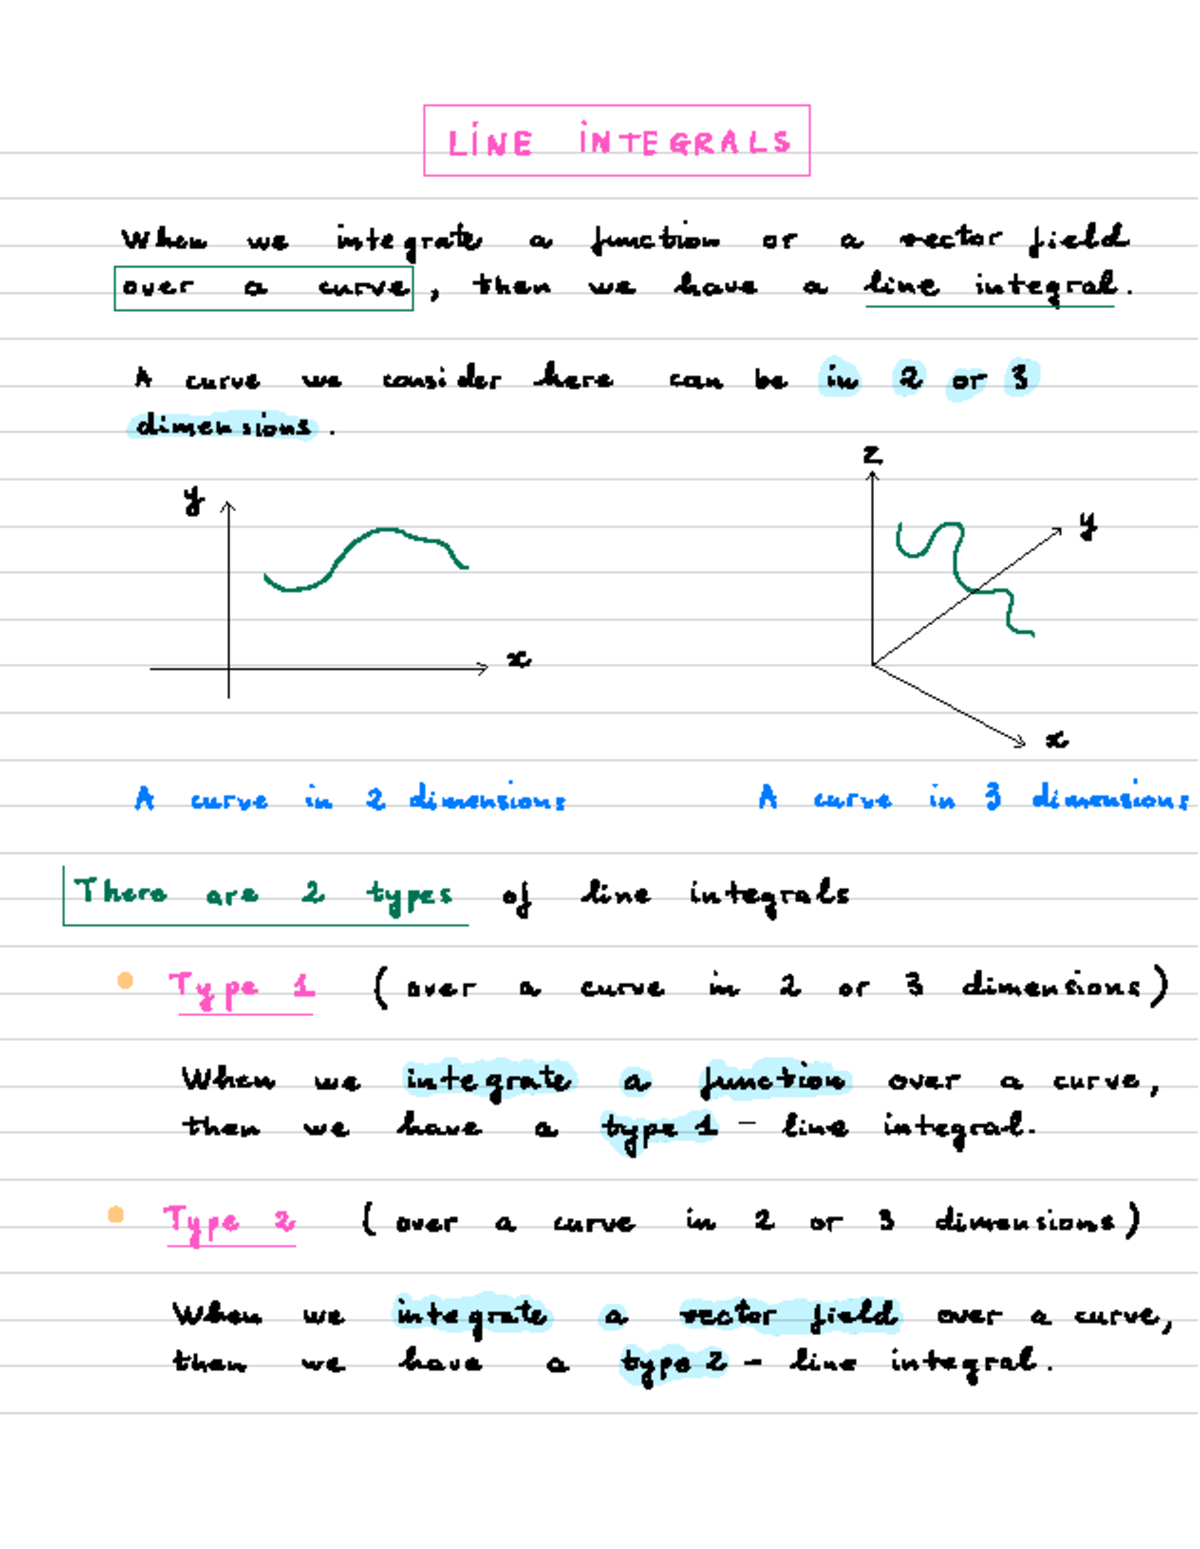 LINE INTEGRALS
When we integrate a function or a vector field
over a curve, then we have a line integral.
A curve we consider here can be in 2 or 3
dimensions.
z
y
y
x
x
A curve in 2 dimensions
A curve in 3 dimensions
There are 2 types of line integrals
Type 1 (over a curve in 2 or 3 dimensions)
When we integrate a function over a curve,
then we have a type 1 - line integral.
Type 2 (over a curve in 2 or 3 dimensions)
When we integrate a vector field over a curve,
then we have a type 2 - line integral.